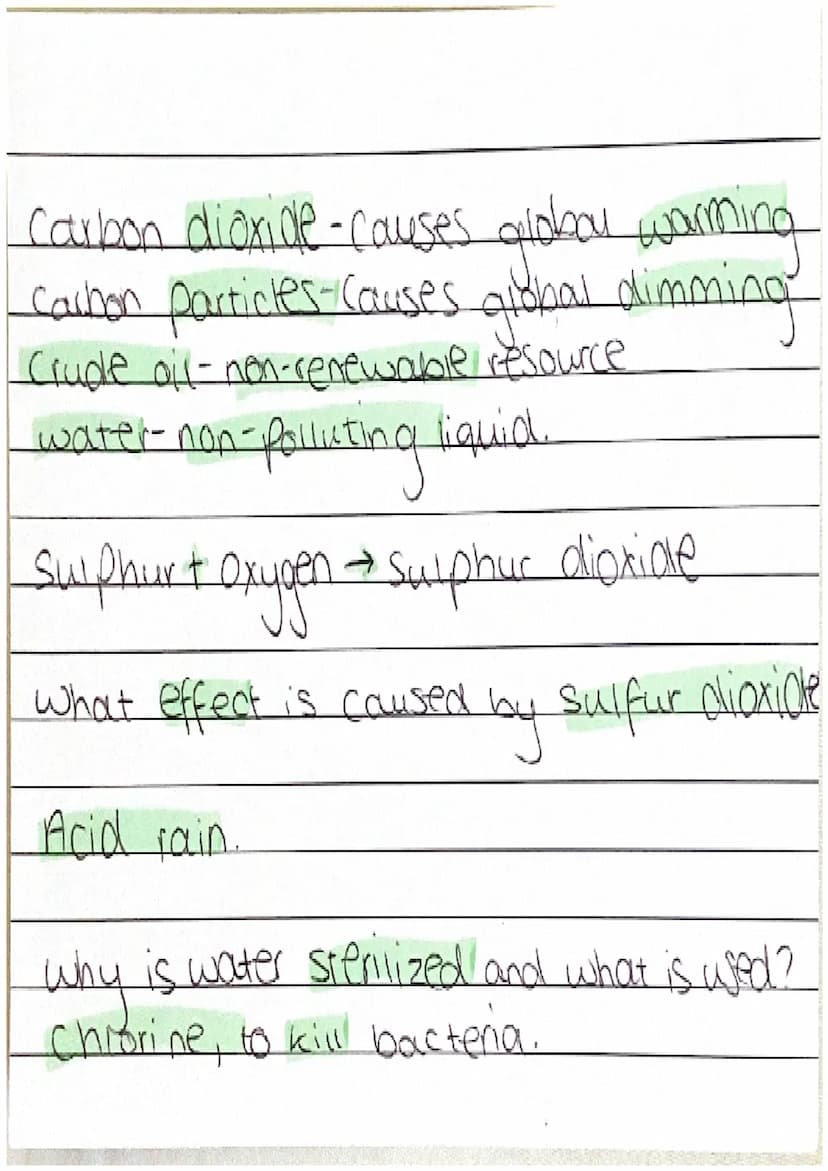 Carbon dioxide - causes global warming
Carbon particles - causes global dimming
Crude oil - non-renewable resource
water - non-polluting liquid.
Sulphur + oxygen → sulphur dioxide
What effect is caused by sulfur dioxide
Acid rain.
Why is water sterilized and what is used?
Chlorine, to kill bacteria.